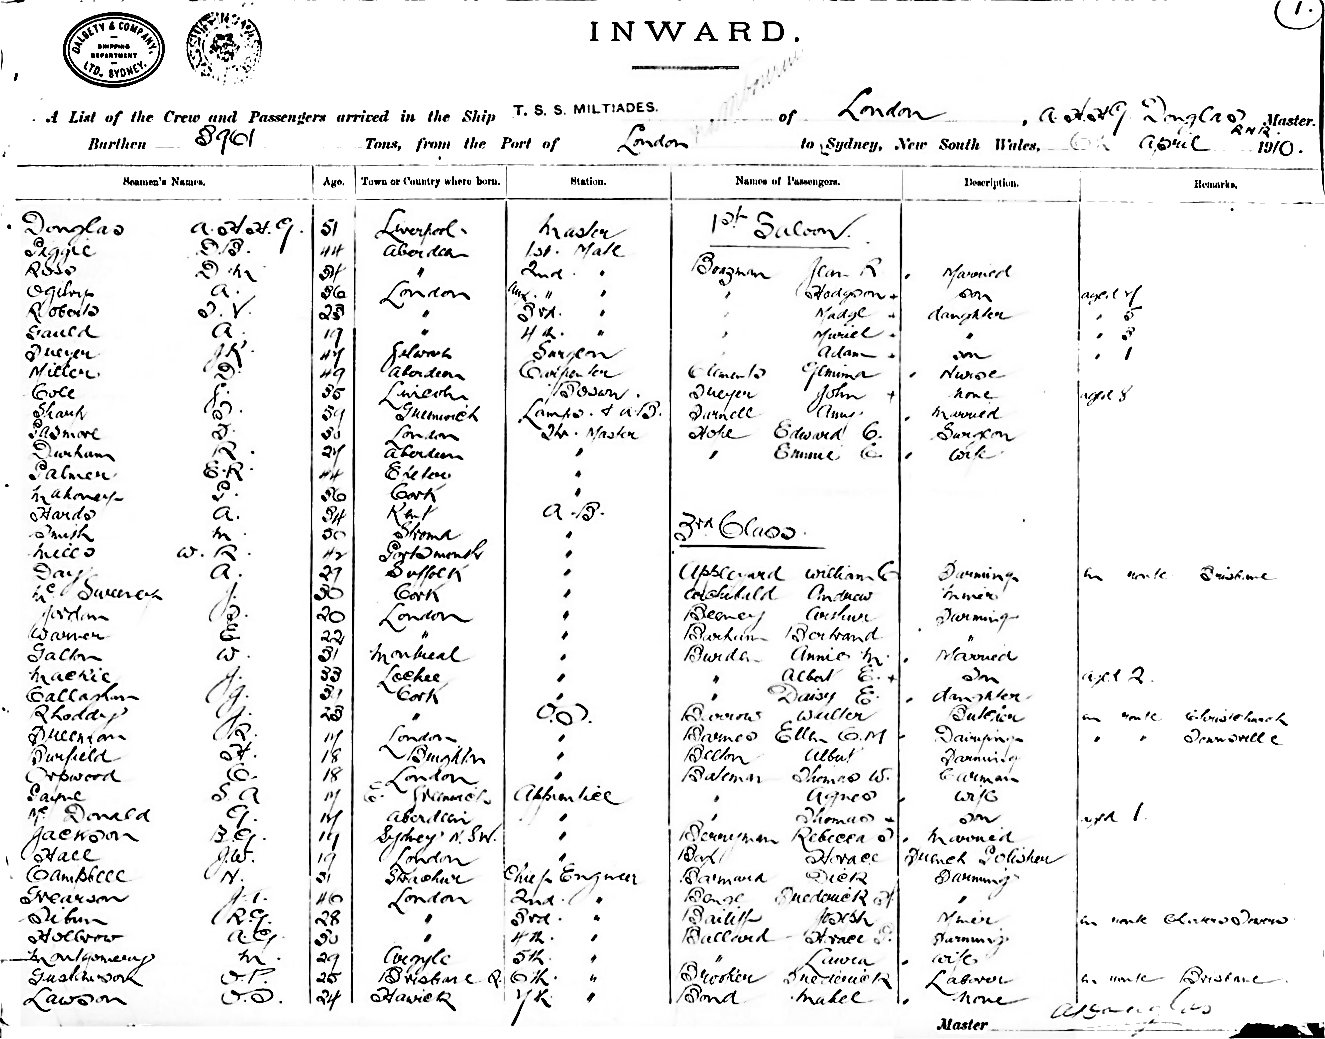 1.
DALGETY & COMPANY, LTD. SYDNEY.
SHIPPING DEPARTMENT
INWARD.
A List of the Crew and Passengers arrived in the Ship T. S. S. MILTIADES. of London, A.H.H.G. Douglas R.N.R. Master.
Burthen 3901 Tons, from the Port of London to Sydney, New South Wales, 6th April 1910.
Seamen's Names. Age. Town or Country where born. Station. Names of Passengers. Description. Remarks.
Douglas A.H.H.G. 51 Liverpool Master 1st Saloon.
44 Aberdeen 1st. Mate
Ross D M 34 " 2nd. " Boazman Jean R. Married
Ogilvy A. 36 London Aux. " " " Hodgson son aged 7
Roberts 23 " 3rd. " " Madge daughter " 5
Gauld A. 19 " 4th. " " Muriel " " 3
47 Surgeon " Adam son " 1
Miller D. 49 Aberdeen Carpenter Clements Jemima Nurse
Cole J. 35 Lincoln Bosun. John none aged 8
59 Greenwich Lamps. & A.B. Darnell Annie Married
30 London Qtr. Master Hoke Edward C. Surgeon
Durham R. 27 Aberdeen " " Emmie C. wife
Palmer E.R. 44 Exeter "
Mahoney P. 36 Cork "
Hards A. 34 Kent A.B. 3rd Class.
Smith M. 30 Stroma "
Mills W. R. 42 Portsmouth "
Day A. 29 Suffolk " Appleyard William C Farming en route Brisbane
McSweeney J. 30 Cork " Archibald Andrew Miner
Jordan 20 London " Beeney Arthur Farming
Warner E 22 " " Barham Bertrand "
Galton W. 31 Montreal " Burden Annie M. Married
Mackie J. 33 Lochee " " Albert E. son aged 2
Callaghan J. 31 Cork " " Daisy E. daughter
Rhoddy J. 23 " O.S. Barrow Walter Butcher en route Christchurch
R. 17 London " Barnes Ellen C.M Dairying " " Townsville
Burfield H. 18 Brighton " Belton Albert Farming
Orpwood C. 18 London " Bateman Thomas W. Carman
Payne S A 17 E. Greenwich Apprentice " Agnes wife
McDonald G. 17 Aberdeen " " Thomas son aged 1.
Jackson B.G. 19 Sydney N.S.W. " Berryman Rebecca Married
Hall J.W. 19 London " Horace French Polisher
Campbell N. 51 Chief Engineer Barnard Dick Farming
Grearson 40 London 2nd. " Benge Frederick H "
R.G. 28 " 3rd. " Bailiff Joseph Miner en route Charters Towers
Holbrow A.G. 30 " 4th. " Ballard Horace Farming
Montgomery M. 29 Argyle 5th. " " Laura wife
O.P. 25 Brisbane Q. 6th. " Brooker Frederick Laborer en route Brisbane
Lawson O.S. 24 Hawick 7th " Bond Mabel None
Master